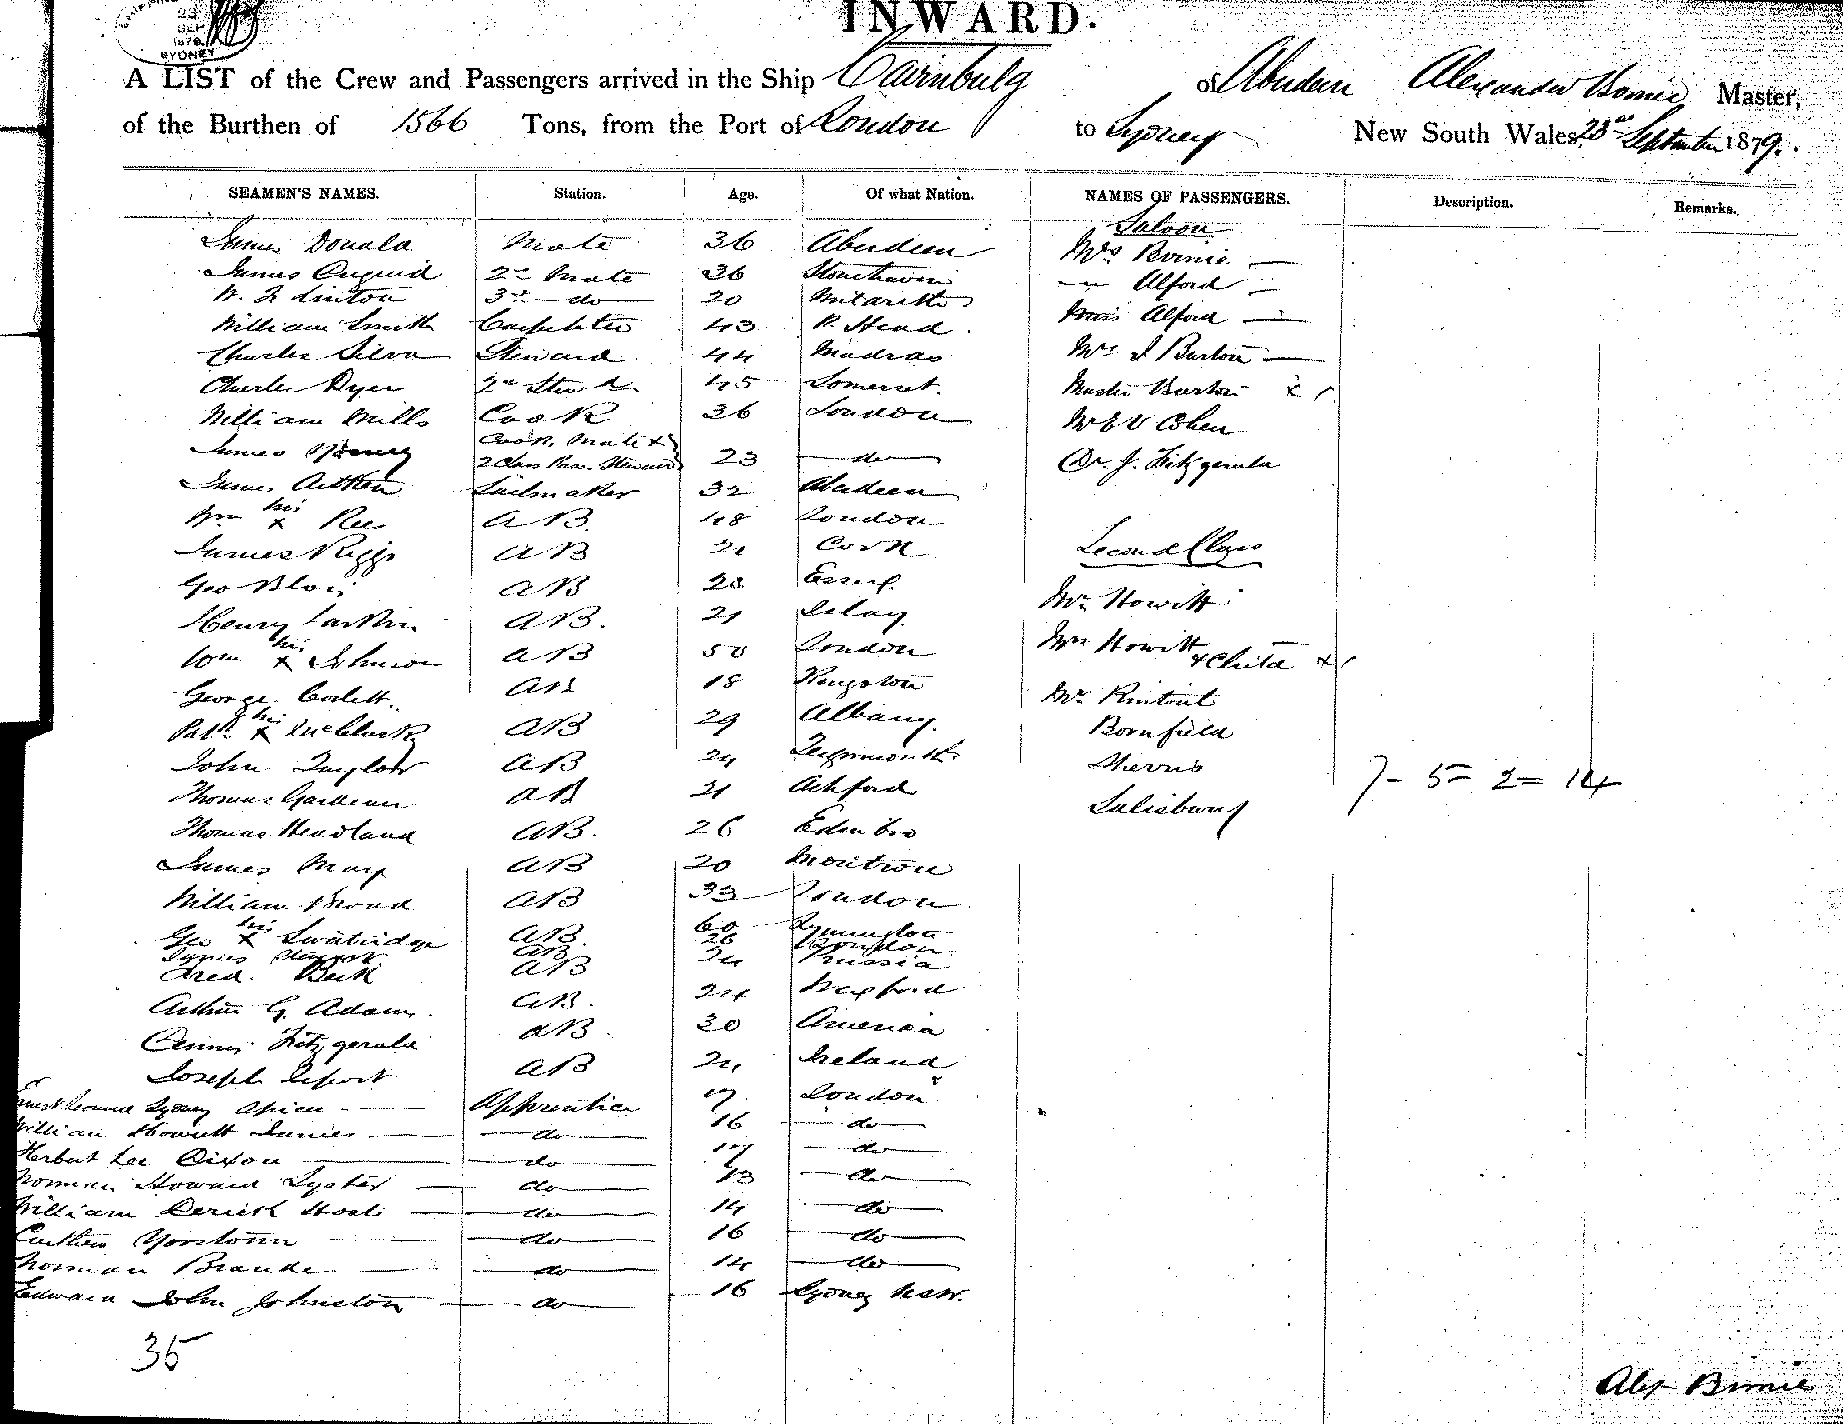 SYDNEY
INWARD.
A LIST of the Crew and Passengers arrived in the Ship Cairnbulg of Aberdeen Alexander Birnie Master,
of the Burthen of 1566 Tons, from the Port of London to Sydney New South Wales 23rd September 1879.
SEAMEN'S NAMES. Station. Age. Of what Nation. NAMES OF PASSENGERS. Description. Remarks.
Saloon
James Donald Mate 36 Aberdeen Mrs Birnie
James Duguid 2nd Mate 36 Stonehaven Alford
W. F Linton 3rd do 20
William Smith Carpenter 43 P. Head Miss Alford
Charles Silva Steward 44 Madras Mrs I Burton
Charles Dyer 2nd Stewd 45 Somerset Master Burton x
William Mills Cook 36 London Mr E V Cohen
James Cooks Mate &
2 Class Pass. Steward 23 do Dr. J. Fitzgerald
James Aitken Sailmaker 32 Aberdeen
Wm his x Rees AB. 48 London
James Riggs AB 21 Cork Second Class
Geo Blois AB 28 Essex
Henry Larkin AB. 21 Islay Mr Howitt
Wm his x Johnson AB 50 London Mrs Howitt & Child x
George Corlett AB 18 Kingston Mr Rintout
Patk his x McClusky AB 29 Albany Bornfield
John Taylor AB 24 Teignmouth
Thomas Gardener AB 21 Ashford 7- 5= 2= 14
Thomas Headland AB. 26 Edinbro Salisbury
James May AB 20 Montrose
William Broad AB 33 London
Geo his x Swatridge AB. 60 Lymington
James AB 26 London
Fred. Beck AB 24 Russia
Arthur G. Adams AB. 24 Wexford
Dennis Fitzgerald AB. 30 America
Joseph AB 24 Ireland
Sydney Apprentice 17 London
William James do 16 do
Herbert Lee Dixon do 17 do
Norman Howard Lyster do 13 do
William do 14 do
Yorstoun do 16 do
Norman Braude do 14 do
Edward John Johnston do 16 Sydney NSW.
35
Alex Birnie